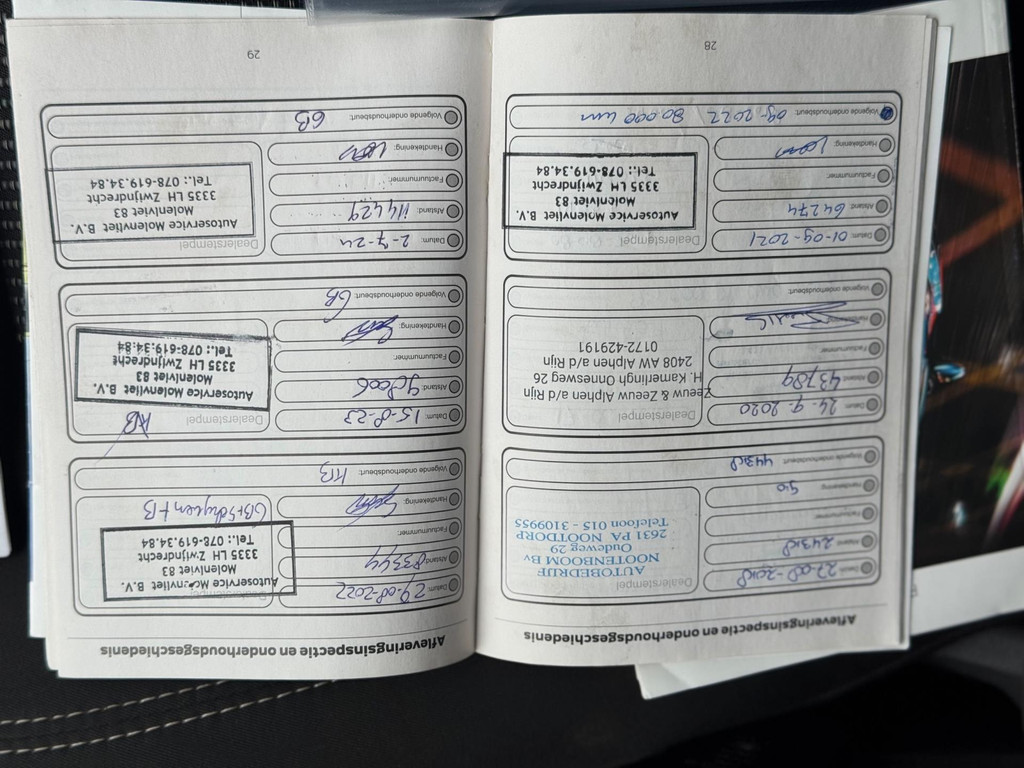 Afleveringsinspectie en onderhoudsgeschiedenis
Datum: 27-08-2018
Afstand: 24318
Factuurnummer:
Handtekening:
Volgende onderhoudsbeurt: 44318
Dealerstempel
AUTOBEDRIJF
NOOTENBOOM BV
Oudeweg 29
2631 PA NOOTDORP
Telefoon 015 - 3109955
Datum: 24-9-2020
Afstand: 43789
Factuurnummer:
Volgende onderhoudsbeurt:
Dealerstempel
Zeeuw & Zeeuw Alphen a/d Rijn
H. Kamerlingh Onnesweg 26
2408 AW Alphen a/d Rijn
0172-429191
Datum: 01-09-2021
Afstand: 64274
Factuurnummer:
Handtekening:
Volgende onderhoudsbeurt: 09-2022 80.000 km
Dealerstempel
Autoservice Molenvliet B.V.
Molenvliet 83
3335 LH Zwijndrecht
Tel.: 078-619.34.84
28
Afleveringsinspectie en onderhoudsgeschiedenis
Datum: 29-08-2022
Afstand: 83344
Factuurnummer:
Handtekening:
Volgende onderhoudsbeurt:
Dealerstempel
Autoservice Molenvliet B.V.
Molenvliet 83
3335 LH Zwijndrecht
Tel.: 078-619.34.84
Datum: 15-8-23
Afstand: 98006
Factuurnummer:
Handtekening:
Volgende onderhoudsbeurt: GB
Dealerstempel
Autoservice Molenvliet B.V.
Molenvliet 83
3335 LH Zwijndrecht
Tel.: 078-619.34.84
Datum: 2-7-24
Afstand: 114429
Factuurnummer:
Handtekening:
Volgende onderhoudsbeurt: GB
Dealerstempel
Autoservice Molenvliet B.V.
Molenvliet 83
3335 LH Zwijndrecht
Tel.: 078-619.34.84
29